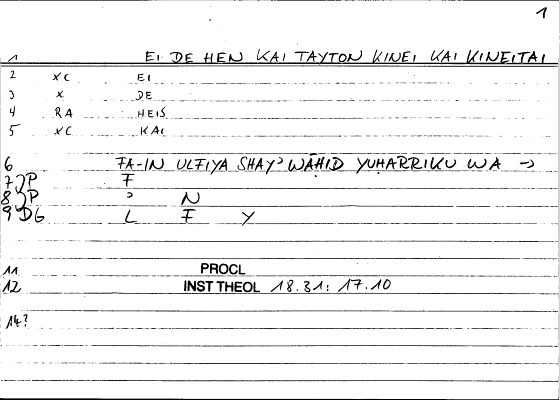 1
1 EI DE HEN KAI TAYTON KINEI KAI KINEITAI
2 XC EI
3 X DE
4 RA HEIS
5 XC KAI
6 FA-IN ULFIYA SHAYʾ WĀḤID YUḤARRIKU WA →
7)P F
8)P ʾ N
9 DG L F Y
11 PROCL
12 INST THEOL 18.31: 17.10
14?